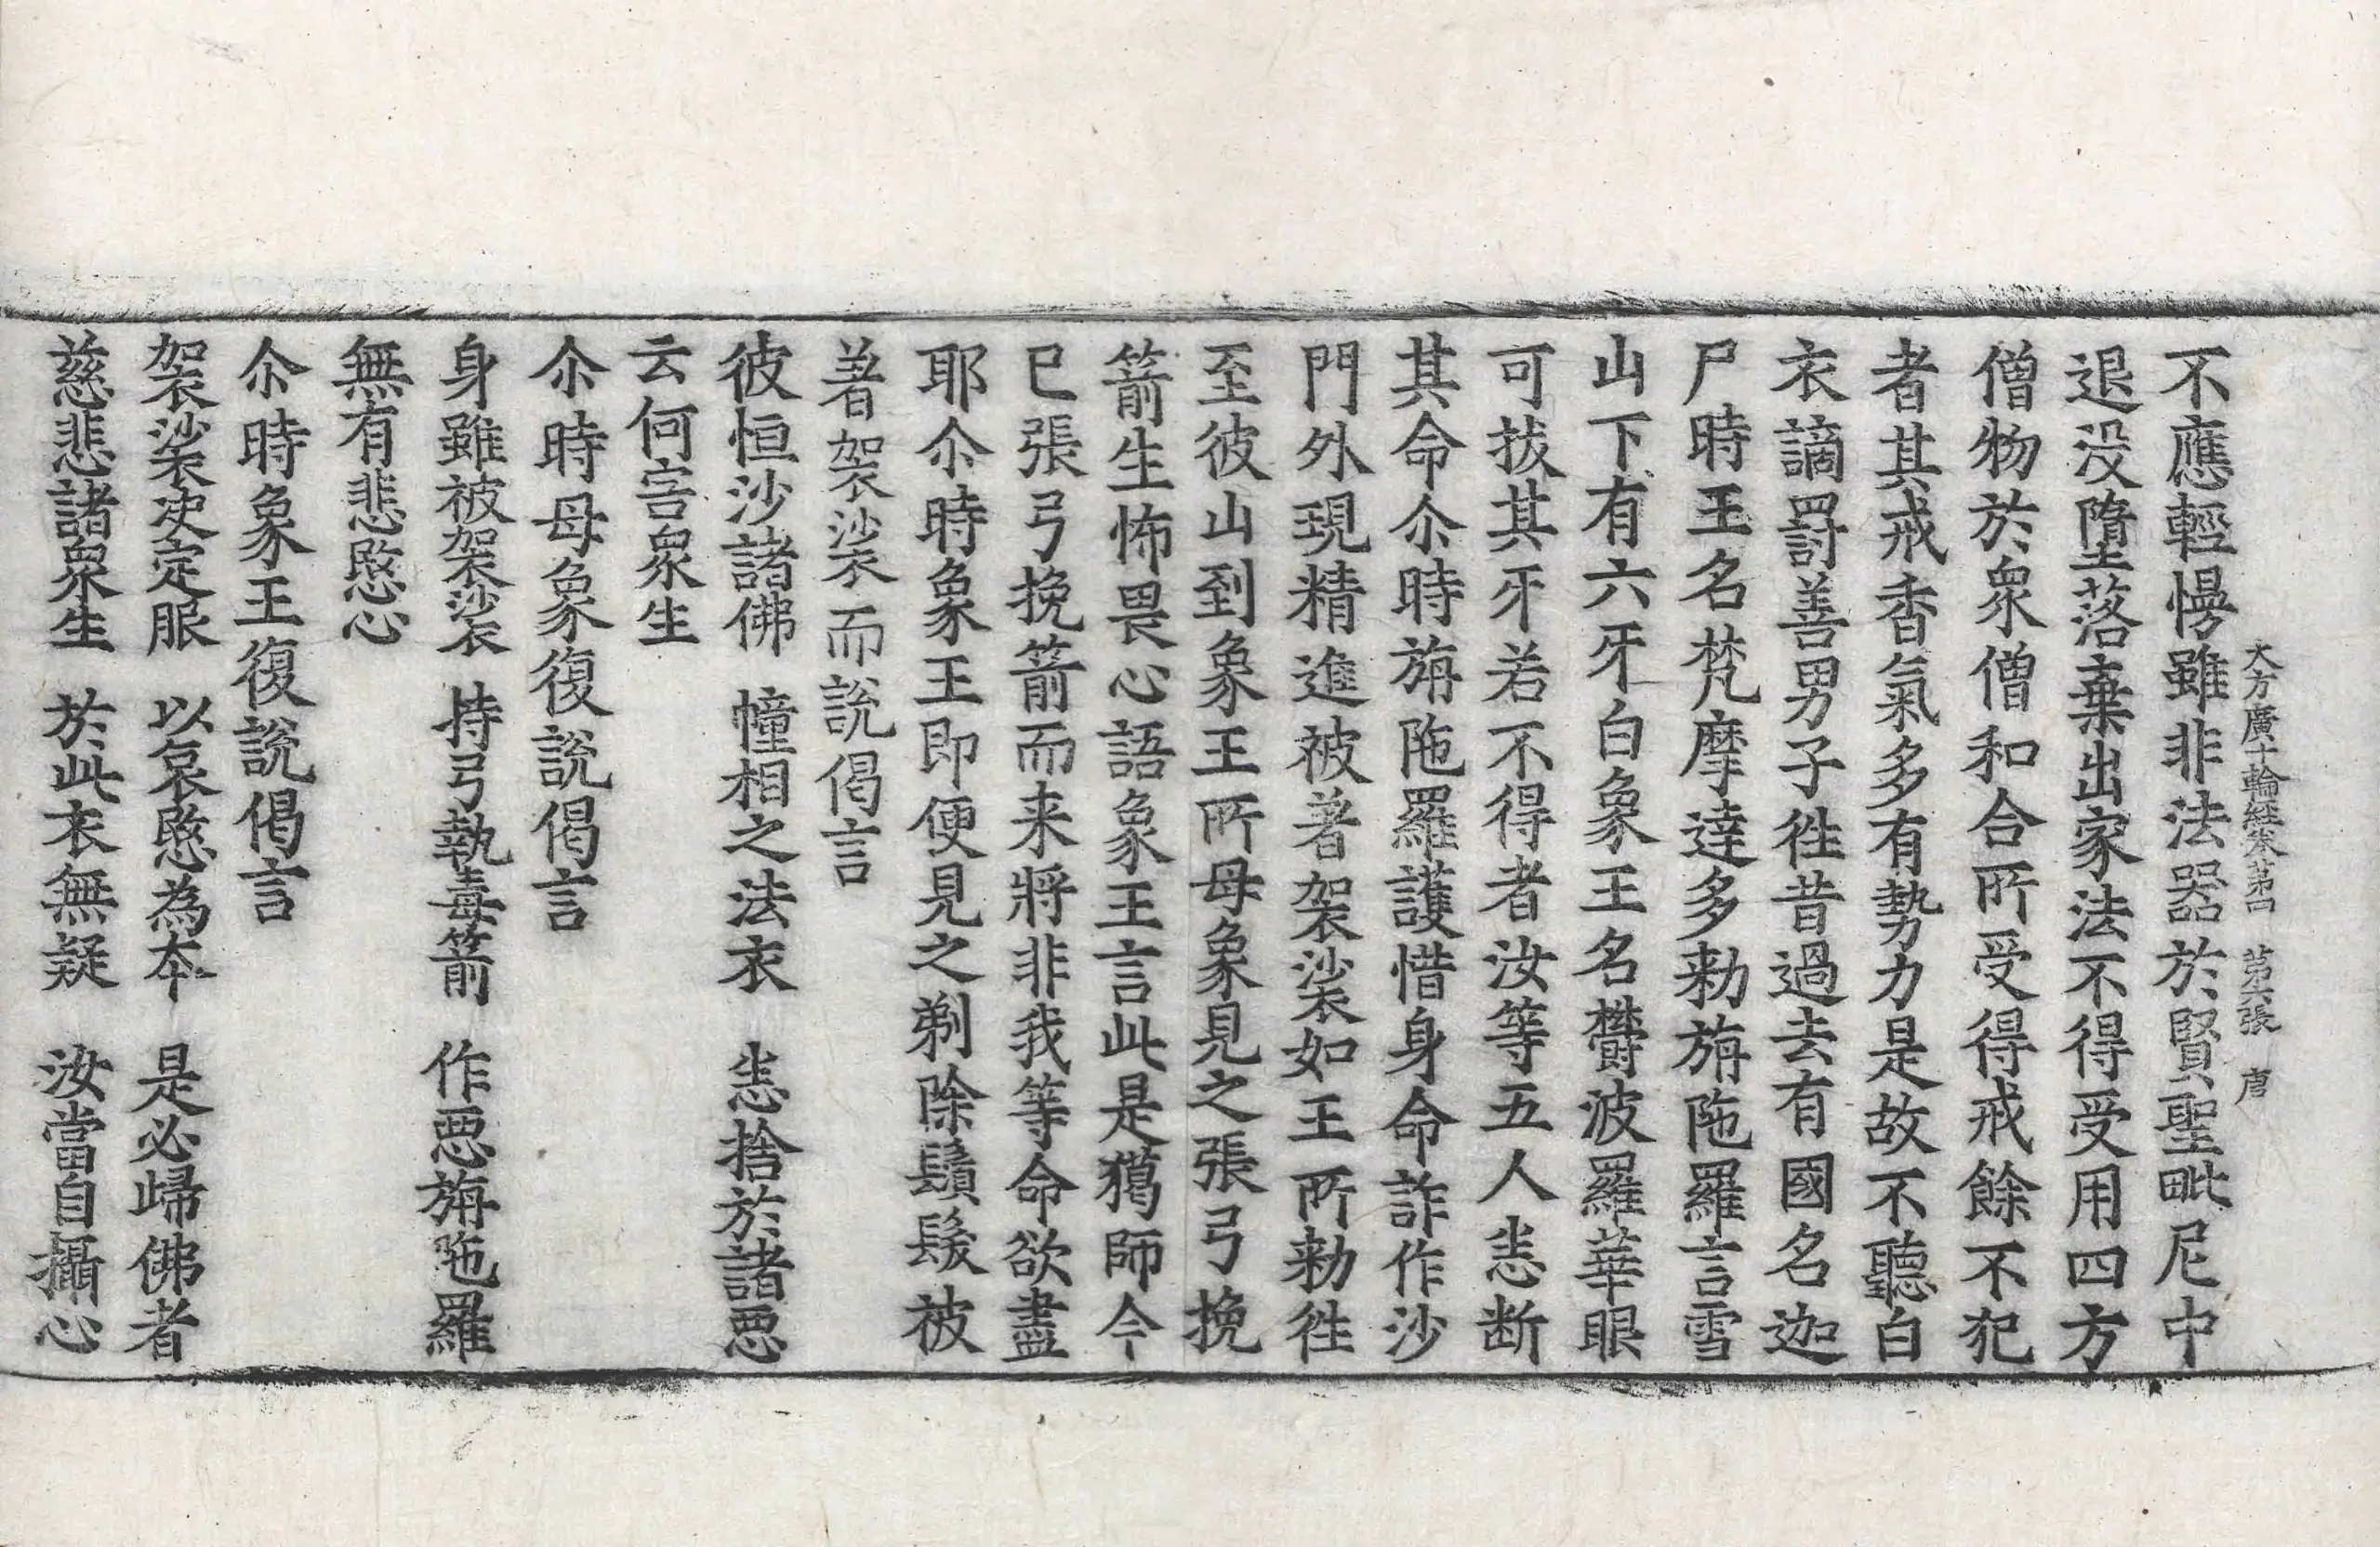 大方廣十輪經卷第四 第六張 唐
不應輕慢雖非法器於賢聖毗尼中
退没墮落棄出家法不得受用四方
僧物於衆僧和合所受得戒餘不犯
者其戒香氣多有勢力是故不聽白
衣謫罸善男子徃昔過去有國名迦
尸時王名梵摩達多勑旃陁羅言雪
山下有六牙白象王名欝波羅華眼
可拔其牙若不得者汝等五人悉断
其命尒時旃陁羅護惜身命詐作沙
門外現精進被著袈裟如王所勑徃
至彼山到象王所母象見之張弓挽
箭生怖畏心語象王言此是獦師今
已張弓挽箭而来將非我等命欲盡
耶尒時象王即便見之剃除鬚髮被
著袈裟而説偈言
彼恒沙諸佛 幢相之法衣 悉捨於諸惡
云何害衆生
尒時母象復説偈言
身雖被袈裟 持弓執毒箭 作惡旃陁羅
無有悲愍心
尒時象王復説偈言
袈裟决定服 以哀愍為本 是必歸佛者
慈悲諸衆生 於此衣無疑 汝當自攝心